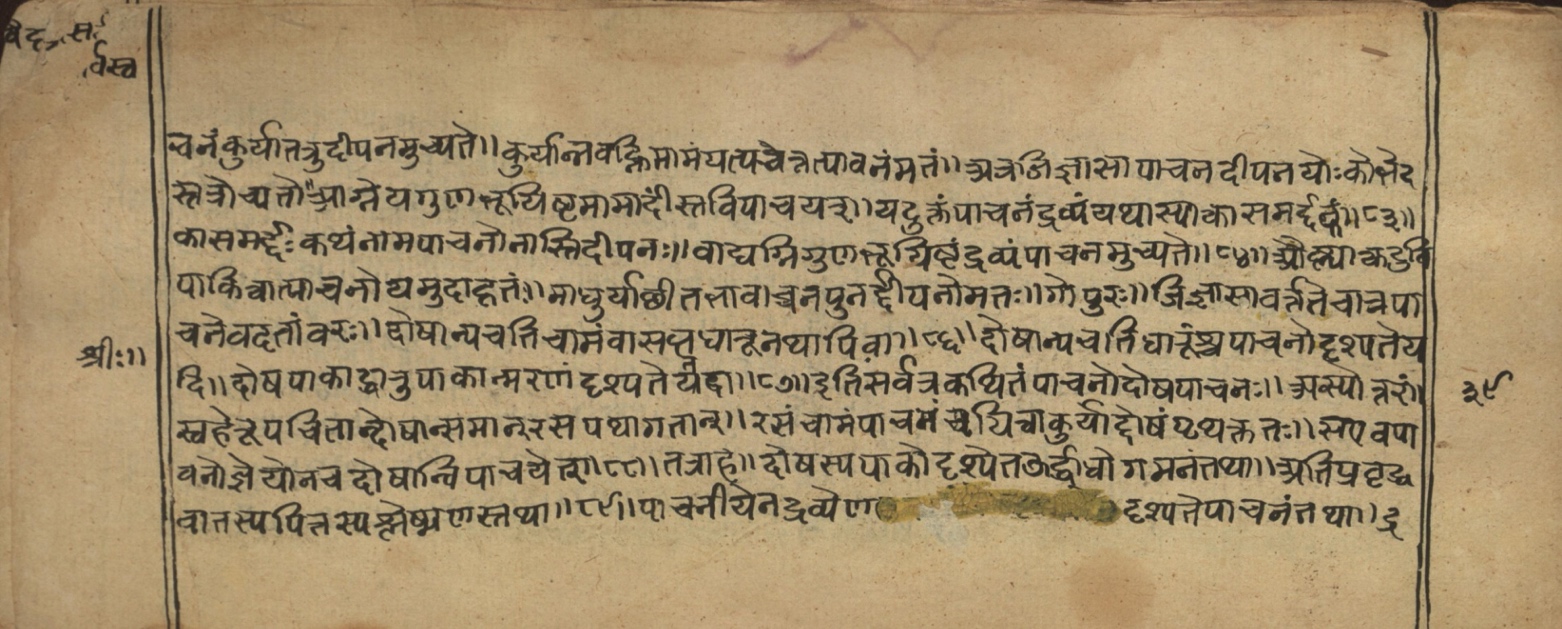 वैद्यस
र्वस्व
चनंकुर्यात्तत्रुदीपनमुच्यते॥कुर्यान्नवह्निमामंयत्पचेत्तत्पाचनंमतं॥अत्रजिज्ञासापाचनदीपनयोःकोभेद
स्तत्रोच्यतो॥आग्नेयगुणभूयिष्टमामादींस्तविपाचयत्॥यदुक्तंपाचनंद्रव्यंयथास्याकासमर्द्दकं॥८३॥
कासमर्द्दःकथंनामपाचनोनास्तिदीपनः॥वाय्वग्निगुणभूयिष्टंद्रव्यंपाचनमुच्यते॥८४॥औष्ण्यात्कटुवि
पाकित्वात्पाचनोयमुदाहृतं॥माधुर्याछीतभावाच्चनपुनर्द्दीपनोमतः॥गोपुरः॥जिज्ञासावर्त्ततेचात्रपा
चनेवदतांवरः॥दोषान्पचतिचामंवासप्तधातूनथापिवा॥८६॥दोषान्पचतिधातूंश्चपाचनोदृश्यतेय
श्रीः॥
दि॥दोषपाकाद्धातुपाकान्मरणंदृश्यतेर्यद्दा॥८७॥इतिसर्वत्रकथितंपाचनोदोषपाचनः॥अस्योत्तरं॥
३९
स्वहेतूपचितान्दोषान्समानरसपथागतान्॥रसंचामंपाचनंचयित्वाकुर्याद्दोषंपृथक्ततः॥सएवपा
चनोज्ञेयोनचदोषान्विपाचयेत्॥८८॥तत्राह॥दोषस्यपाकोदृश्येतऊर्द्धाधोगमनंतथा॥अतिप्रवृद्ध
वातस्यपित्तस्यश्लेष्मणस्तथा॥८९॥पाचनीयेनद्रव्येण दृश्यतेपाचनंतथा॥द्र